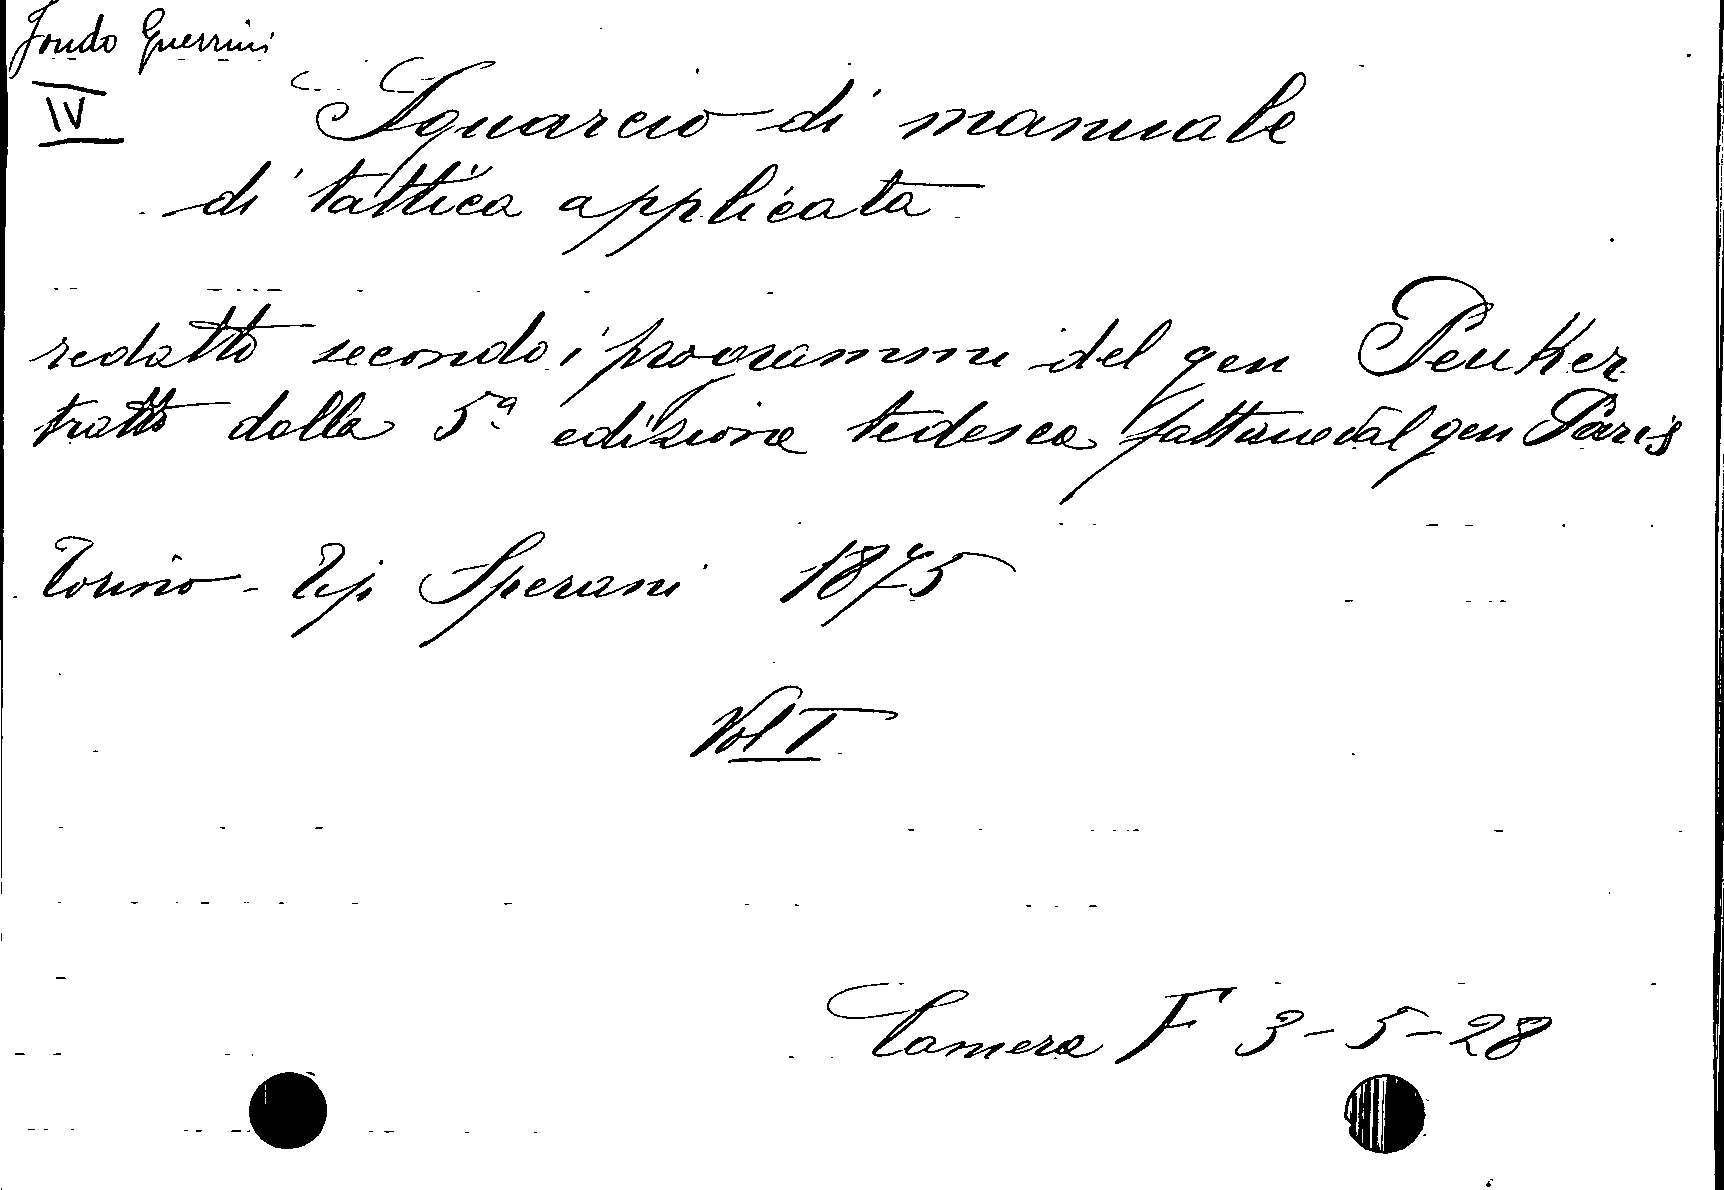 Fondo Guerrini
IV
Squarcio di manuale
di tattica applicata
redatto secondo i programmi del gen Peuker
tratto dalla 5ª edizione tedesca fattane dal gen Paris
Torino - Tip Sperani 1875
Vol I
Camera F 3-5-28